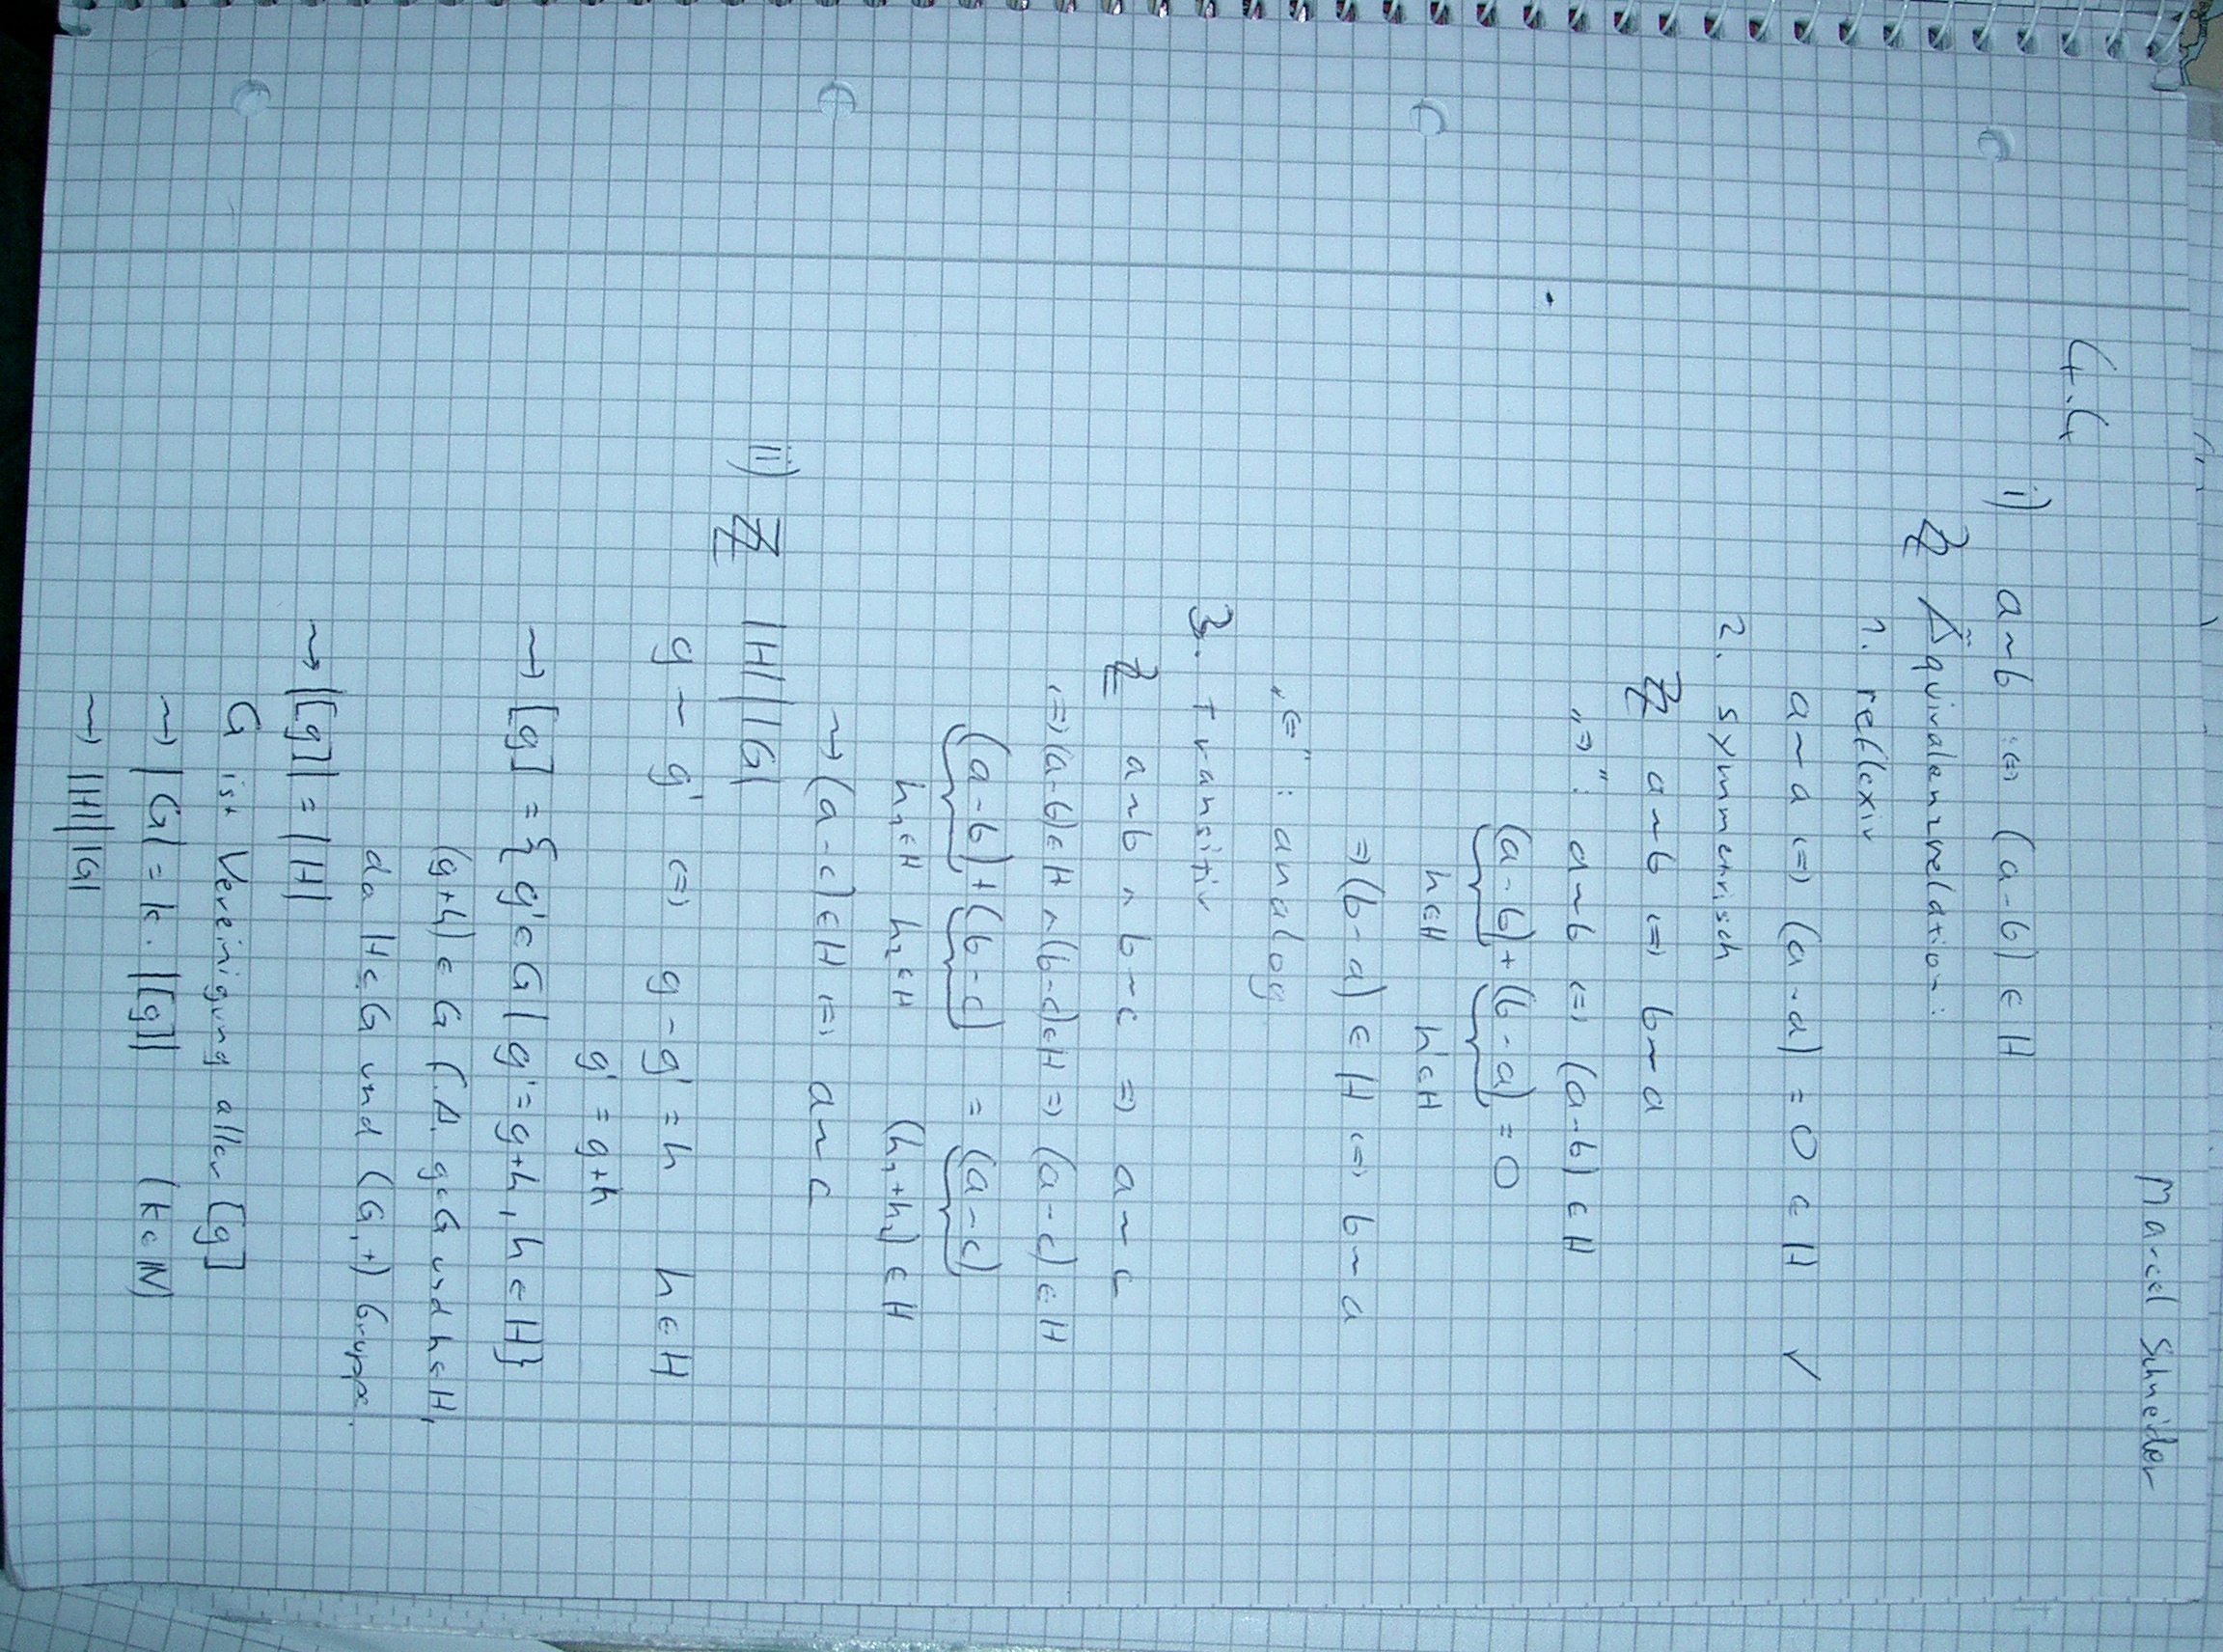 Marcel Schneider
4.4
i) a~b :⇔ (a-b) ∈ H
Z Äquivalenzrelation:
1. reflexiv
a~a ⇔ (a-a) = 0 ∈ H ✓
2. symmetrisch
Z a~b ⇔ b~a
„⇒": a~b ⇔ (a-b) ∈ H
(a-b) + (b-a) = 0
h∈H h'∈H
⇒ (b-a) ∈ H ⇔ b~a
„⇐": analog
3. transitiv
Z a~b ∧ b~c ⇒ a~c
⇔ (a-b)∈H ∧ (b-c)∈H ⇒ (a-c) ∈ H
(a-b) + (b-c) = (a-c)
h₁∈H h₂∈H (h₁+h₂) ∈ H
⇝ (a-c) ∈ H ⇔ a~c
ii) Z |H| | |G|
g ~ g' ⇔ g-g' = h h ∈ H
g' = g+h
⇝ [g] = { g' ∈ G | g' = g+h, h ∈ H}
(g+h) ∈ G f.A. g∈G und h∈H,
da H⊆G und (G,+) Gruppe.
⇝ |[g]| = |H|
G ist Vereinigung aller [g]
⇝ |G| = k · |[g]| (k∈ℕ)
⇝ |H| | |G|